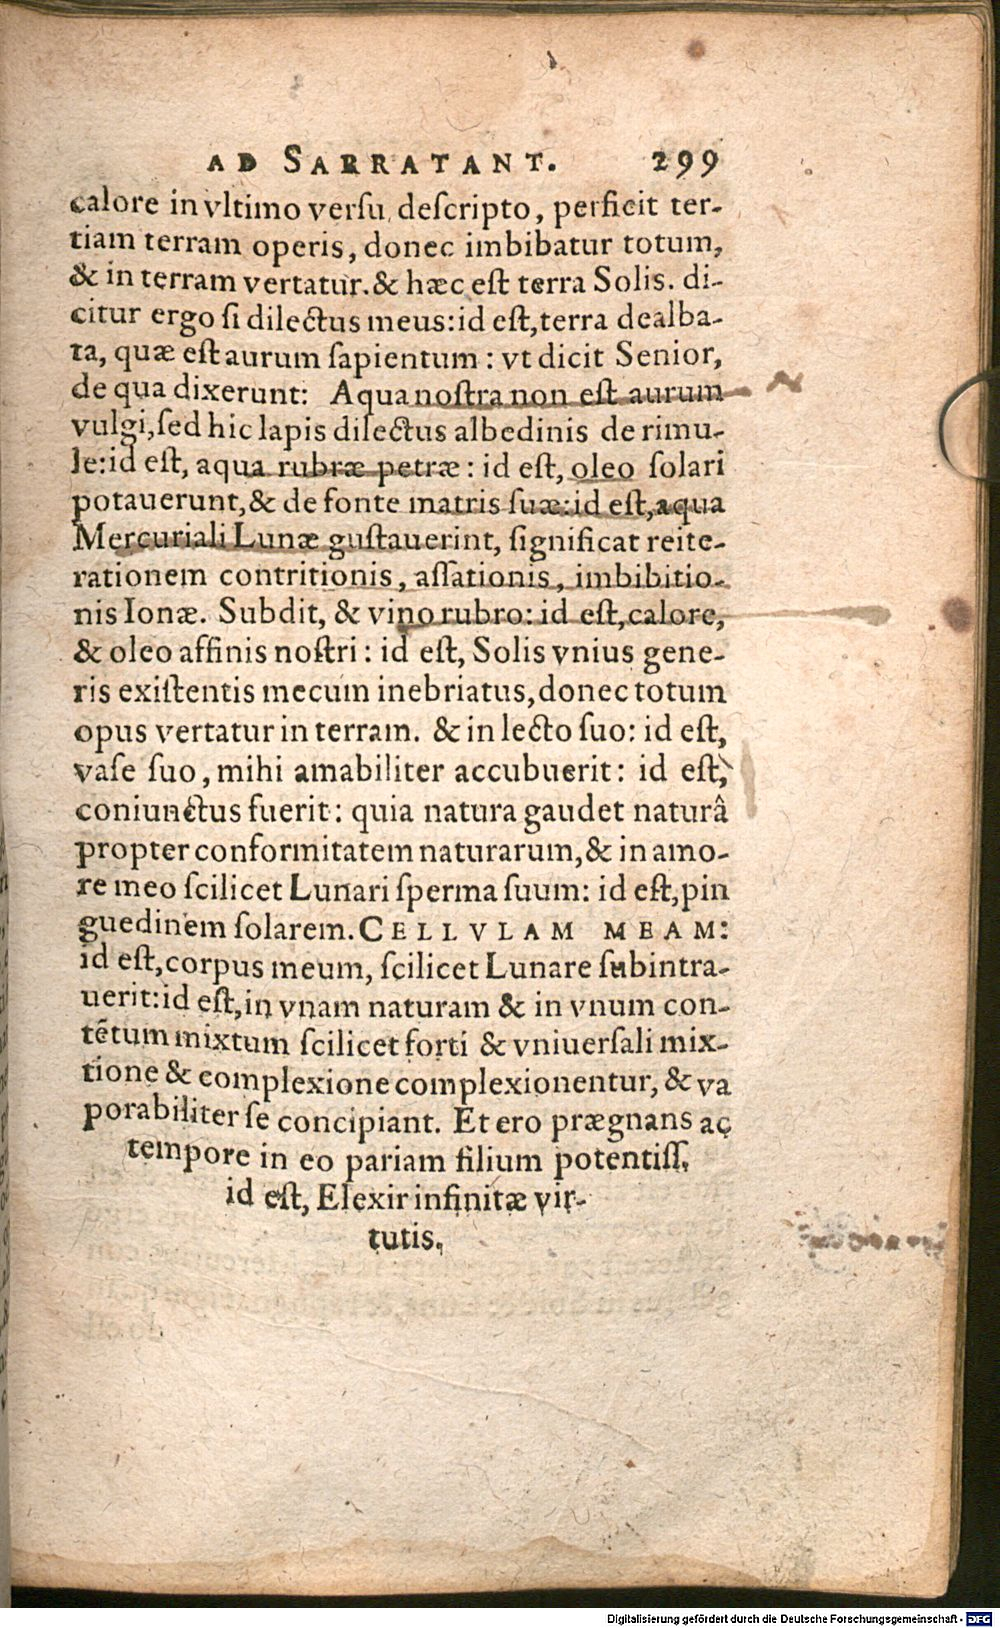 AD SARRATANT. 299
calore in vltimo versu descripto, perficit ter-
tiam terram operis, donec imbibatur totum,
& in terram vertatur. & hæc est terra Solis. di-
citur ergo si dilectus meus: id est, terra dealba-
ta, quæ est aurum sapientum: vt dicit Senior,
de qua dixerunt: Aqua nostra non est aurum
vulgi, sed hic lapis dilectus albedinis de rimu-
le: id est, aqua rubræ petræ: id est, oleo solari
potauerunt, & de fonte matris suæ: id est, aqua
Mercuriali Lunæ gustauerint, significat reite-
rationem contritionis, assationis, imbibitio-
nis Ionæ. Subdit, & vino rubro: id est, calore,
& oleo affinis nostri: id est, Solis vnius gene-
ris existentis mecum inebriatus, donec totum
opus vertatur in terram. & in lecto suo: id est,
vase suo, mihi amabiliter accubuerit: id est,
coniunctus fuerit: quia natura gaudet naturâ
propter conformitatem naturarum, & in amo-
re meo scilicet Lunari sperma suum: id est, pin
guedinem solarem. CELLVLAM MEAM:
id est, corpus meum, scilicet Lunare subintra-
uerit: id est, in vnam naturam & in vnum con-
tẽtum mixtum scilicet forti & vniuersali mix-
tione & complexione complexionentur, & va
porabiliter se concipiant. Et ero prægnans ac
tempore in eo pariam filium potentiss.
id est, Elexir infinitæ vir-
tutis.
Digitalisierung gefördert durch die Deutsche Forschungsgemeinschaft - DFG